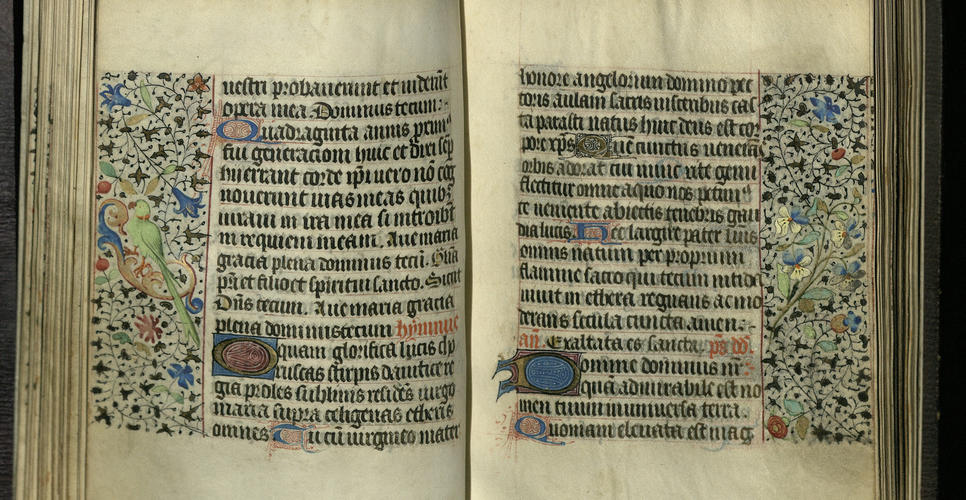 uestri probauerunt et uiderūt
opera mea Dominus tecum
Quadraginta annis proxi
fui generationi huic et dixi sēp
hii errant corde ip̄i uero nō cog
nouerunt uias meas quib
iuraui in ira mea si introibūt
in requiem meam. Aue maria
gracia plena dominus tecū. Glīa
p̄ri et filio et spiritui sancto. Sicut
Dn̄s tecum. Aue maria gracia
plena dominus tecum hymnus
O quam glorifica lucis
ruscas stirpis dauitice re
gia proles sublimis residēs uirgo
maria supra celigenas etheris
omnes Tu cū uirgineo mater
honore angelorum domino pec
toris aulam sacris uisceribus cas
ta parasti natus huic deus est cor
pore xp̄s Que cunctus uenerāc
orbis adorat cui nunc rite genu
flectitur omne a quo nos petim
te ueniente abiectis tenebris gau
dia lucis Hec largire pater luis
omnis natum per proprium
flamine sacro qui tecum nitide
uiuit in ethera regnans ac mo
derans secula cuncta amen
an̄. Exaltata es sancta. p̄s dd̄.
Domine dominus nr̄
quā admirabile est no
men tuum in uniuersa terra.
Quoniam eleuata est mag